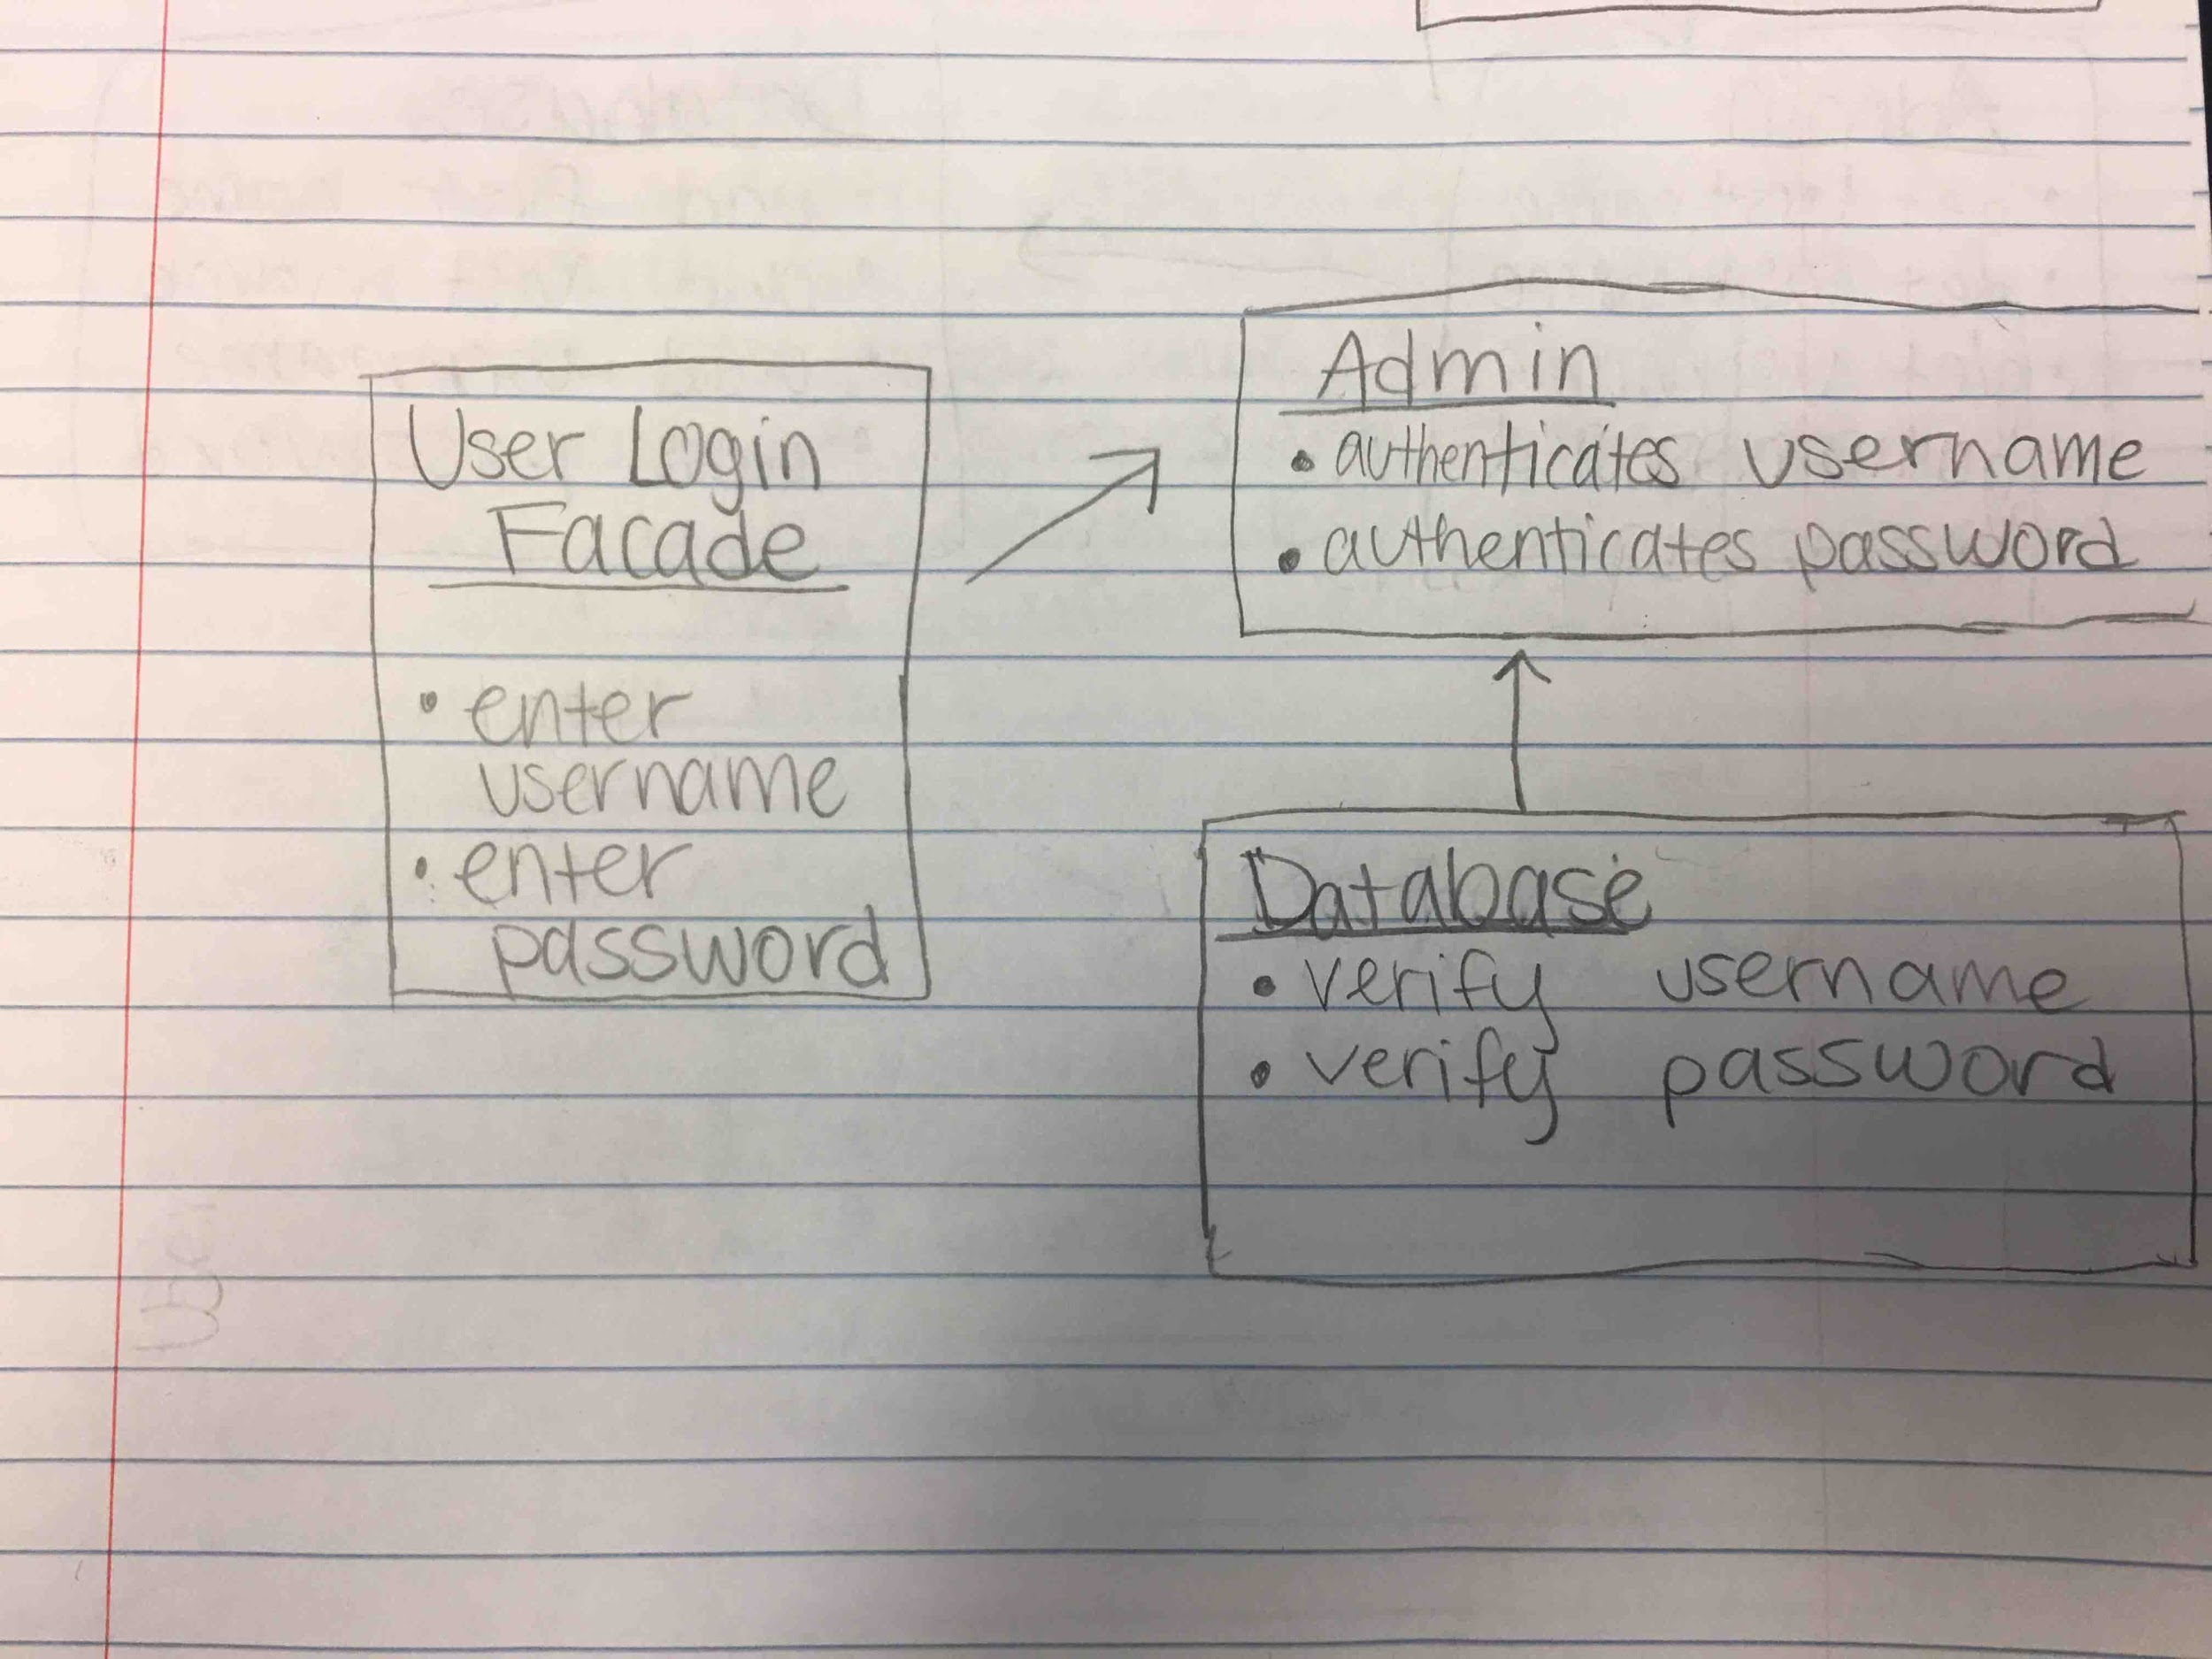 User Login
Facade
• enter
username
• enter
password
Admin
• authenticates username
• authenticates password
Database
• verify username
• verify password